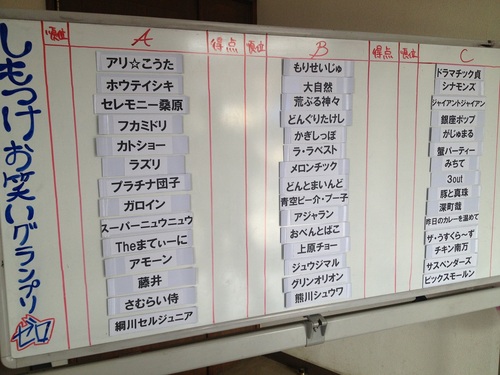 しもつけお笑いグランプリ
ゼロ
順位 A 得点 順位 B 得点 順位 C
アリ☆こうた
ホウテイシキ
セレモニー桑原
フカミドリ
カトショー
ラズリ
プラチナ団子
ガロイン
スーパーニュウニュウ
Theまてぃーに
アモーン
藤井
さむらい侍
綱川セルジュニア
もりせいじゅ
大自然
荒ぶる神々
どんぐりたけし
かぎしっぽ
ラ・ラベスト
メロンチック
どんとまいんど
青空ピー介・プー子
アジャラン
おべんとばこ
上原チョー
ジュウジマル
グリンオリオン
熊川シュウワ
ドラマチック貞
シナモンズ
ジャイアントジャイアン
銀座ポップ
がじゅまる
蟹パーティー
みちて
3out
豚と真珠
深町哉
昨日のカレーを温めて
ザ・うすくら〜ず
チキン南万
サスペンダーズ
ビックスモールン